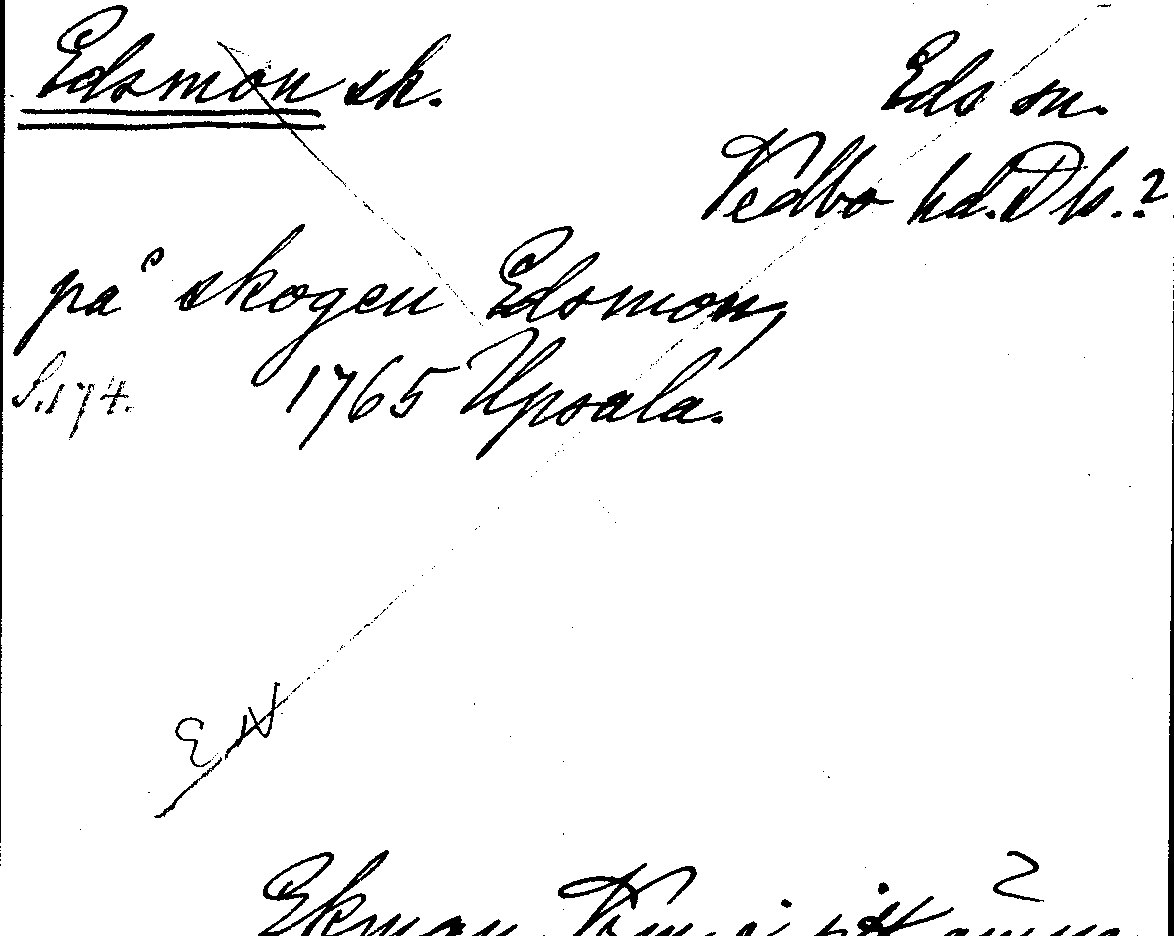 Edsmon sk. Eds sn.
Vedbo hd. Dls.?
på skogen Edsmon,
S. 174. 1765 Upsala.
Ekman,